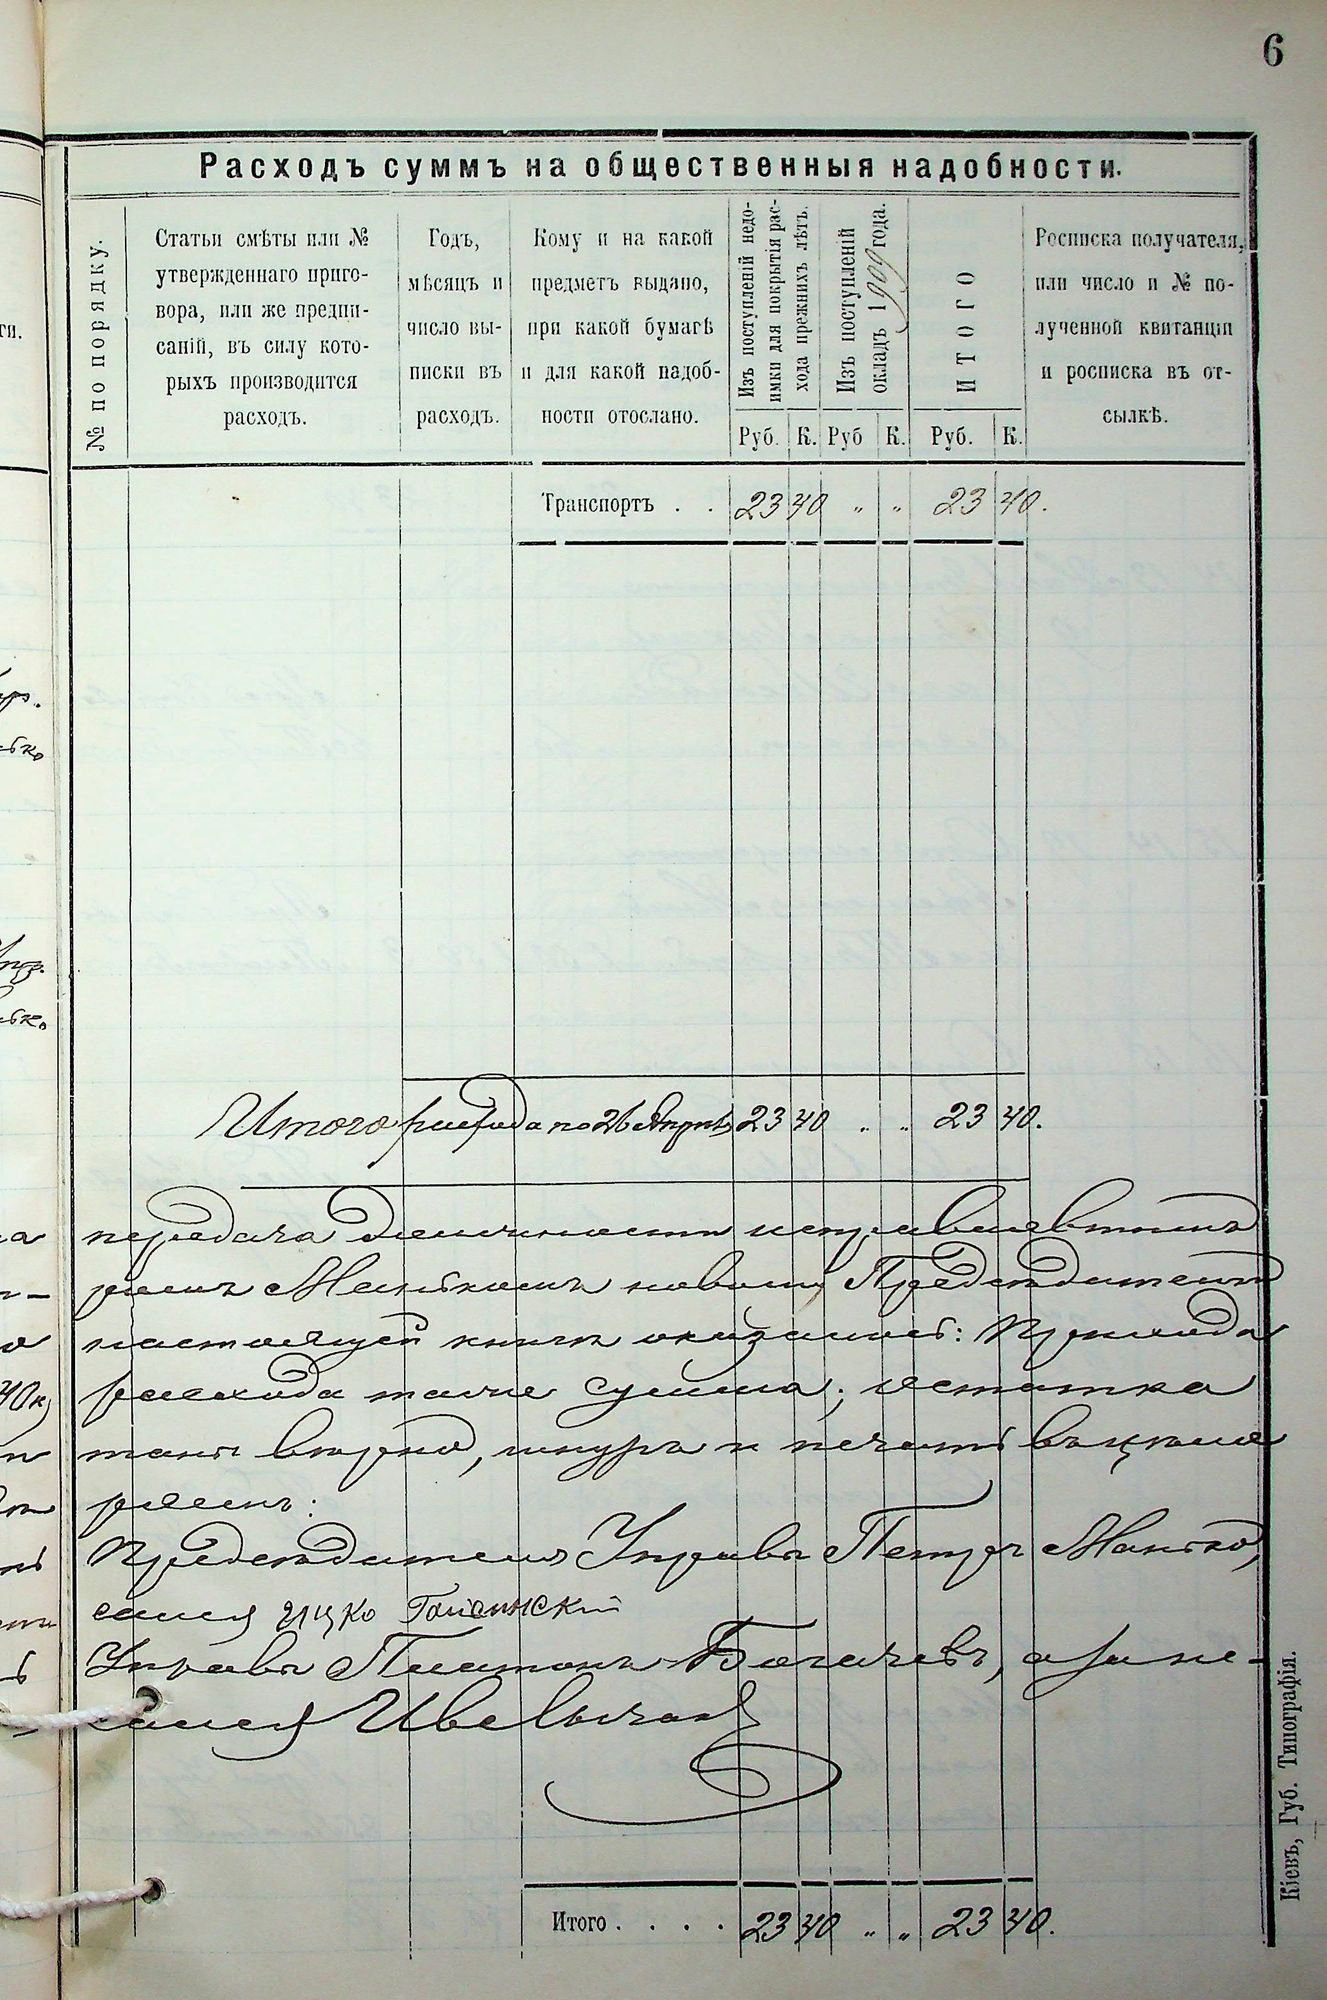 6
Расходъ суммъ на общественныя надобности.
№ по порядку.
Статьи смѣты или №
утвержденнаго приго-
вора, или же предпи-
саній, въ силу кото-
рыхъ производится
расходъ.
Годъ,
мѣсяцъ и
число вы-
писки въ
расходъ.
Кому и на какой
предметъ выдано,
при какой бумагѣ
и для какой надоб-
ности отослано.
Изъ поступленій недо-
имки для покрытія рас-
хода прежнихъ лѣтъ.
Изъ поступленій
окладъ 1909 года.
ИТОГО
Росписка получателя,
или число и № по-
лученной квитанціи
и росписка въ от-
сылкѣ.
Руб. К. Руб К. Руб. К.
Транспортъ . . 23 40 „ „ 23 40.
Итого расхода по 26 Апрѣля 23 40 „ „ 23 40.
передача должности
Манькомъ новому Предсѣдателю
настоящей книги оказалось: Прихода
расхода тоже сумма; остатка
вѣрно, шнуръ и печать въ цѣло
Предсѣдателя Управы Петръ Манько,
Ицко Гайсинскій
Управы Платонъ Богачевъ, а за не-
40к
Итого . . . . 23 40 „ „ 23 40.
Кіевъ, Губ. Типографія.